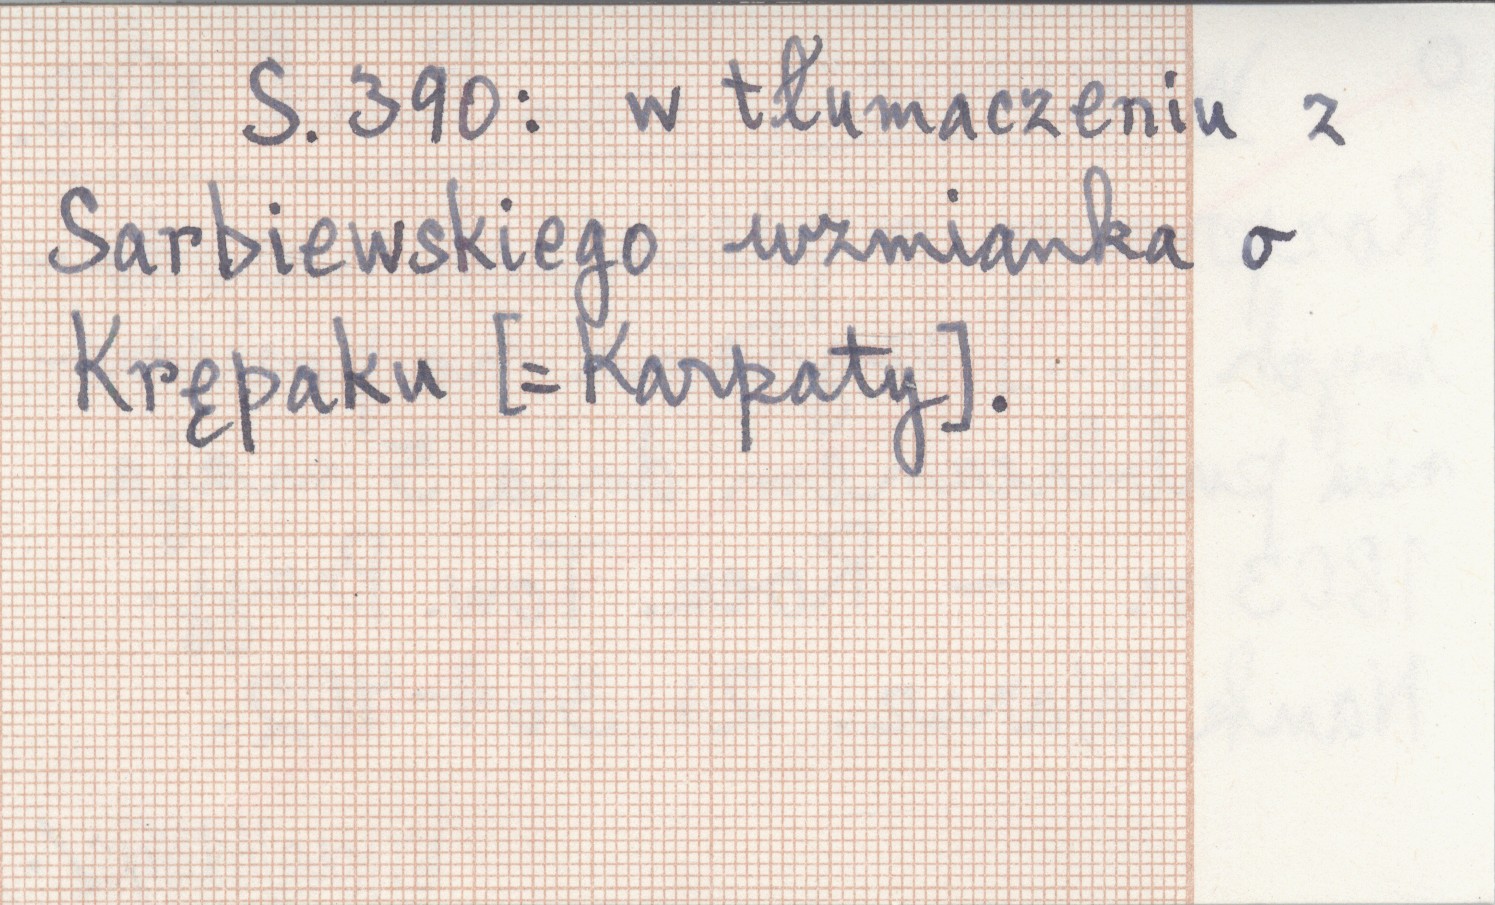 S. 390: w tłumaczeniu z
Sarbiewskiego wzmianka o
Krępaku [=Karpaty].